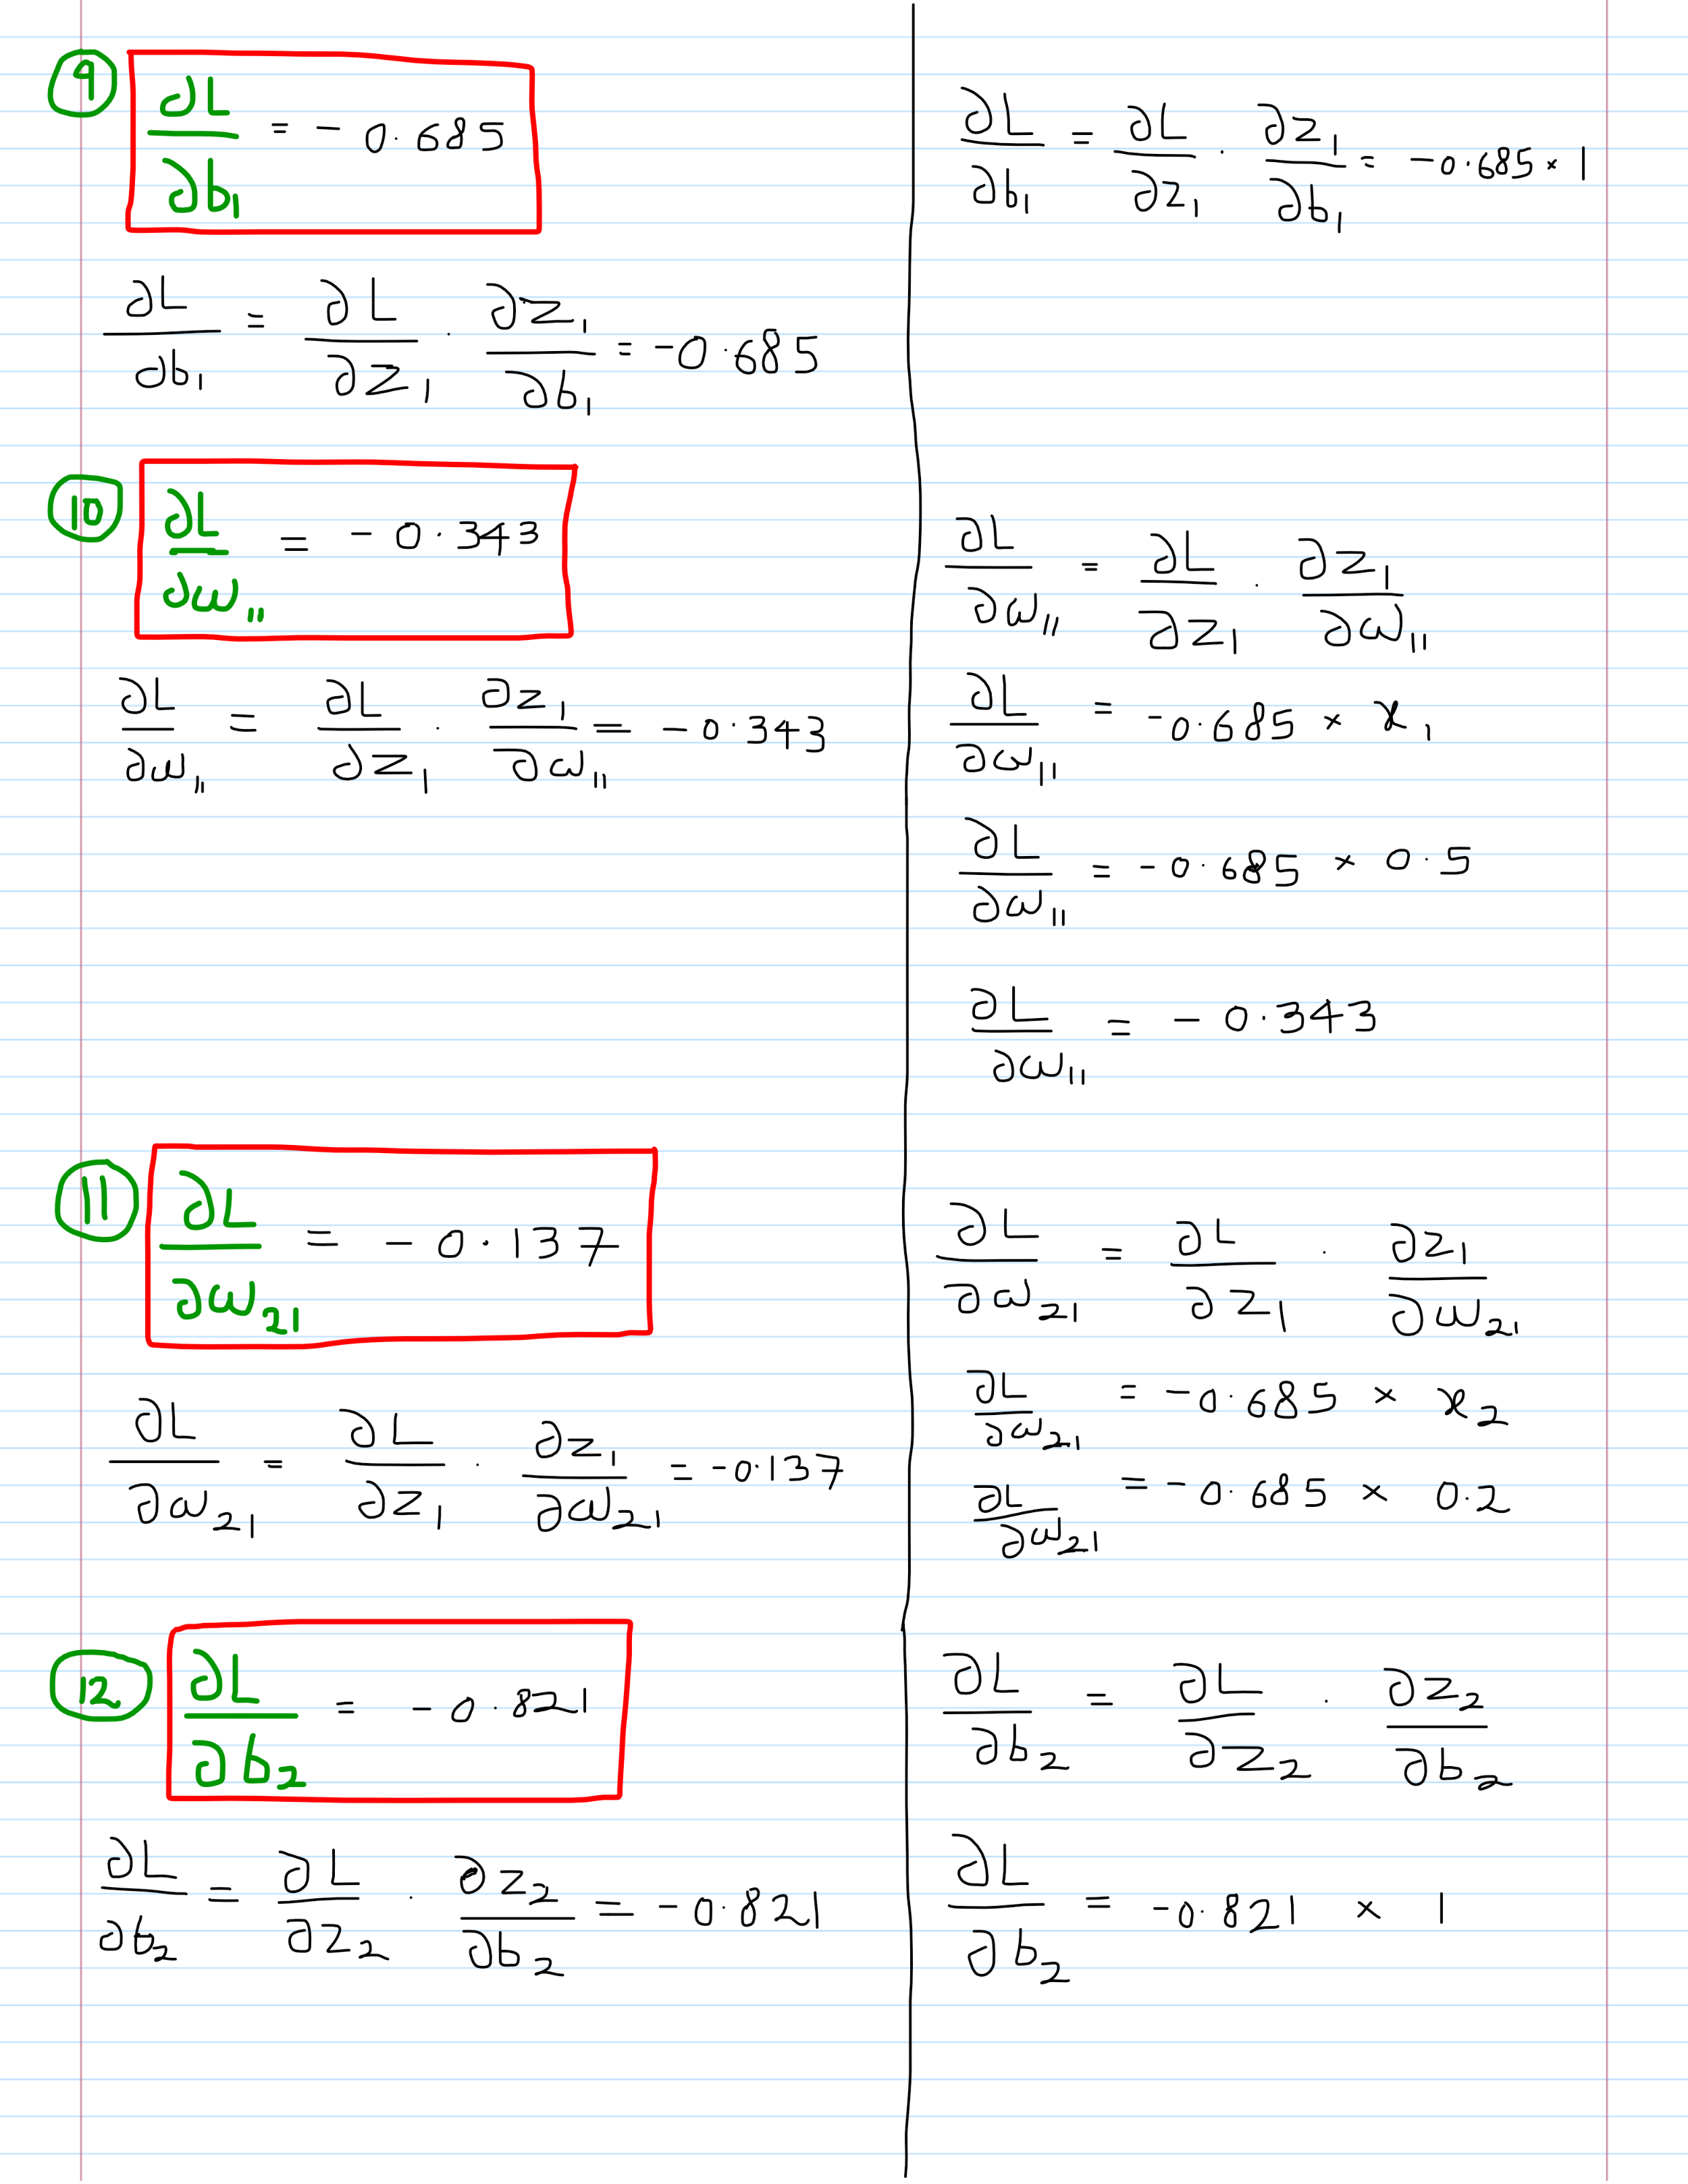 ⑨ ∂L/∂b₁ = - 0.685
∂L/∂b₁ = ∂L/∂z₁ · ∂z₁/∂b₁ = -0.685
⑩ ∂L/∂ω₁₁ = - 0.343
∂L/∂ω₁₁ = ∂L/∂z₁ · ∂z₁/∂ω₁₁ = -0.343
⑪ ∂L/∂ω₂₁ = - 0.137
∂L/∂ω₂₁ = ∂L/∂z₁ · ∂z₁/∂ω₂₁ = -0.137
⑫ ∂L/∂b₂ = - 0.821
∂L/∂b₂ = ∂L/∂z₂ · ∂z₂/∂b₂ = -0.821
∂L/∂b₁ = ∂L/∂z₁ · ∂z₁/∂b₁ = -0.685 × 1
∂L/∂ω₁₁ = ∂L/∂z₁ · ∂z₁/∂ω₁₁
∂L/∂ω₁₁ = -0.685 × x₁
∂L/∂ω₁₁ = -0.685 × 0.5
∂L/∂ω₁₁ = - 0.343
∂L/∂ω₂₁ = ∂L/∂z₁ · ∂z₁/∂ω₂₁
∂L/∂ω₂₁ = -0.685 × x₂
∂L/∂ω₂₁ = -0.685 × 0.2
∂L/∂b₂ = ∂L/∂z₂ · ∂z₂/∂b₂
∂L/∂b₂ = -0.821 × 1